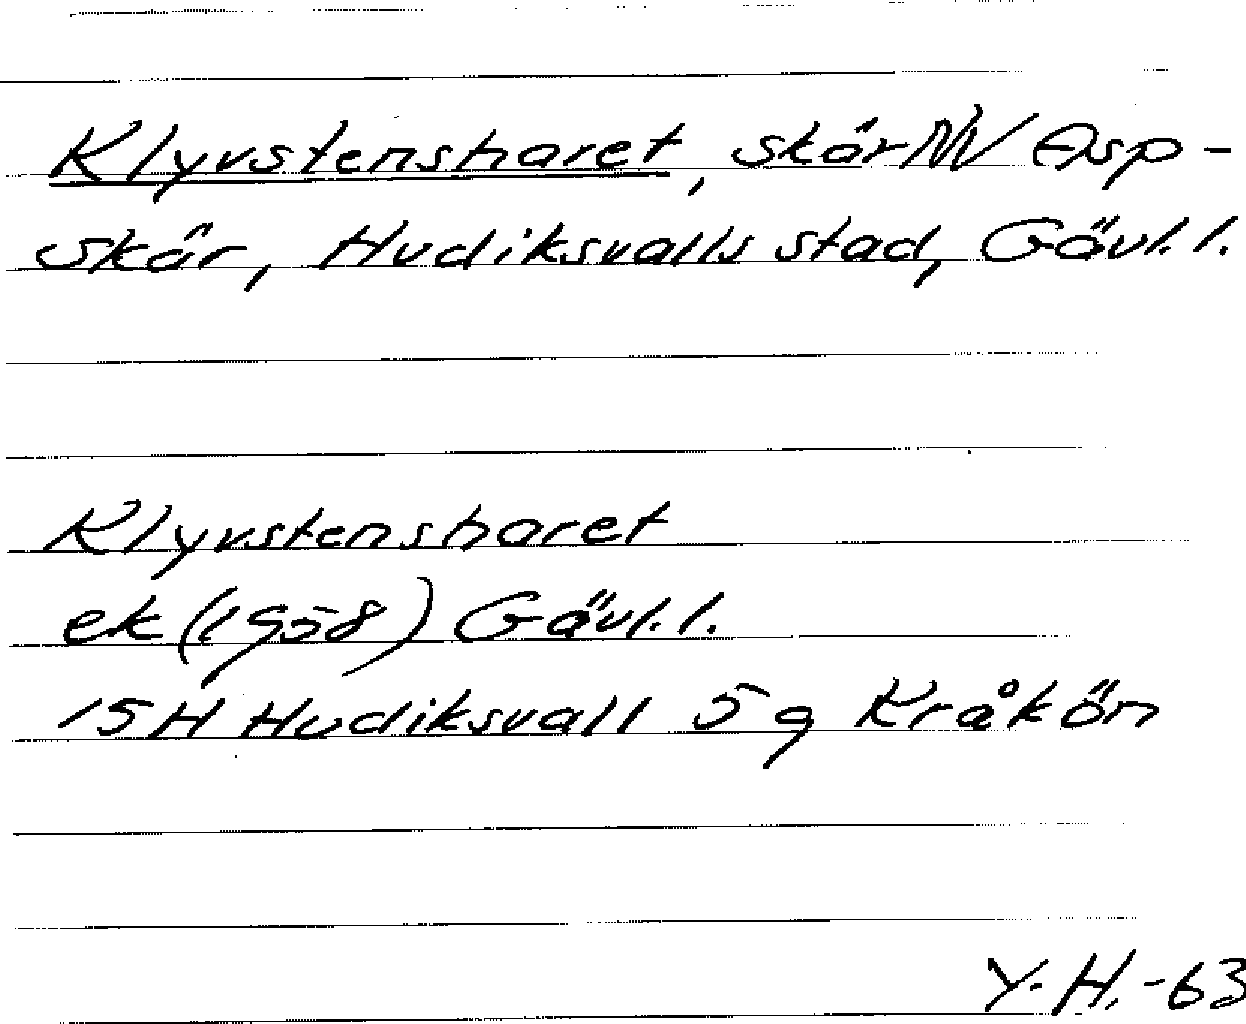 Klyvstensharet, skär NV Asp-
skär, Hudiksvalls stad, Gävl. l.
Klyvstensharet
ek (1958) Gävl. l.
15H Hudiksvall 5g Kråkön
Y. H. -63